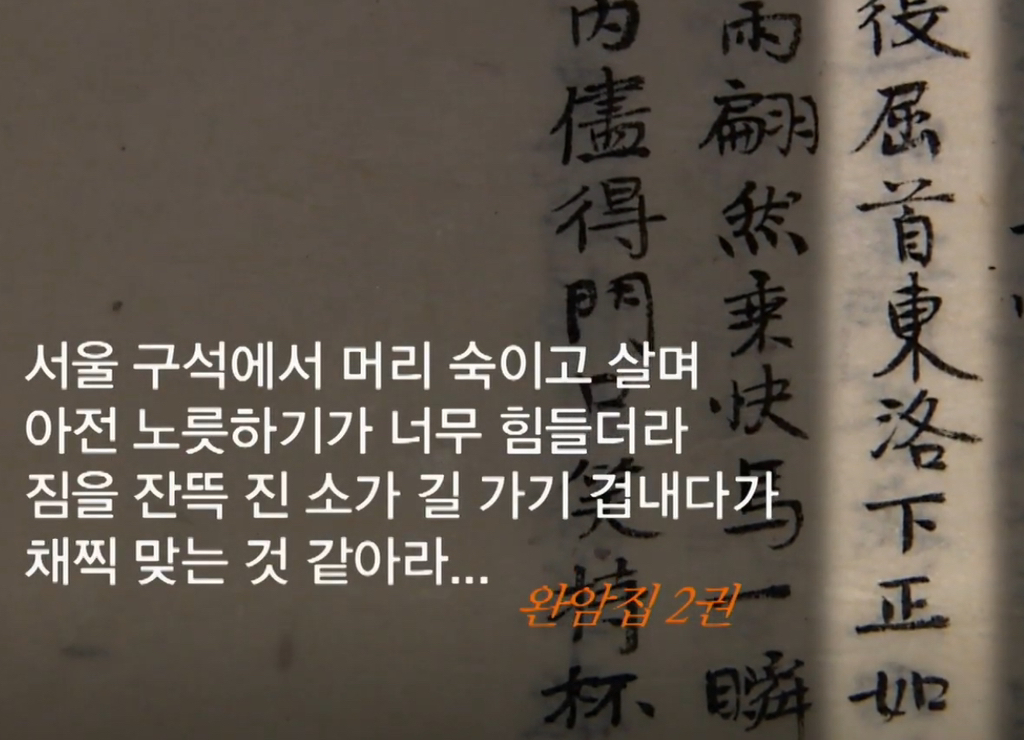 役屈首東洛下正如
雨翩然乗快馬一瞬
内儘得門口笑持杯
서울 구석에서 머리 숙이고 살며
아전 노릇하기가 너무 힘들더라
짐을 잔뜩 진 소가 길 가기 겁내다가
채찍 맞는 것 같아라...
완암집 2권